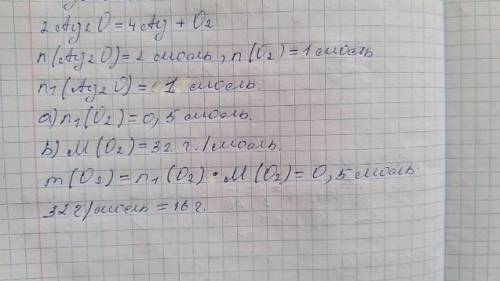 2Ag₂O = 4Ag + O₂
n(Ag₂O) = 2 моль, n(O₂) = 1 моль
n₁(Ag₂O) = 1 моль.
а) n₁(O₂) = 0,5 моль.
b) M(O₂) = 32 г./моль.
m(O₂) = n₁(O₂) · M(O₂) = 0,5 моль ·
32 г/моль = 16 г.